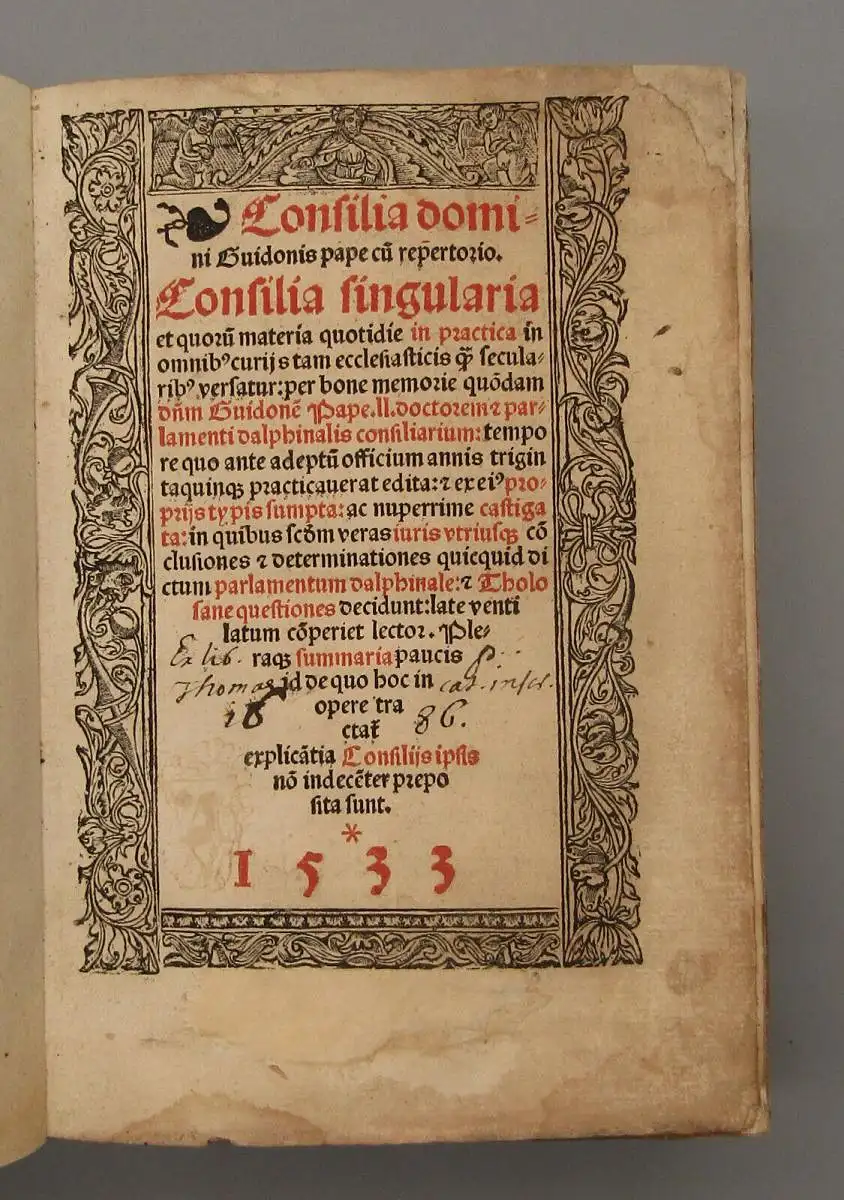 Consilia domi-
ni Guidonis pape cū rep̄ertorio.
Consilia singularia
et quorū materia quotidie in practica in
omnibꝰ curijs tam ecclesiasticis q̄̄ secula-
ribꝰ versatur: per bone memorie quōdam
dn̄m Guidonē Pape. ll. doctorem ⁊ par-
lamenti dalphinalis consiliarium: tempo
re quo ante adeptū officium annis trigin
taquinqꝫ practicauerat edita: ⁊ ex eiꝰ pro-
prijs typis sumpta: ac nuperrime castiga
ta: in quibus scd̄m veras iuris vtriusqꝫ cō
clusiones ⁊ determinationes quicquid di
ctum parlamentum dalphinale: ⁊ Tholo
sane questiones decidunt: late venti
latum cōperiet lector. Ple-
raqꝫ summaria paucis
id de quo hoc in
opere tra
ctat̄
explicātia Consilijs ipsis
nō indecēter prepo
sita sunt.
*
1533
Ex lib.
Thomae
cat. inscr.
16 86.